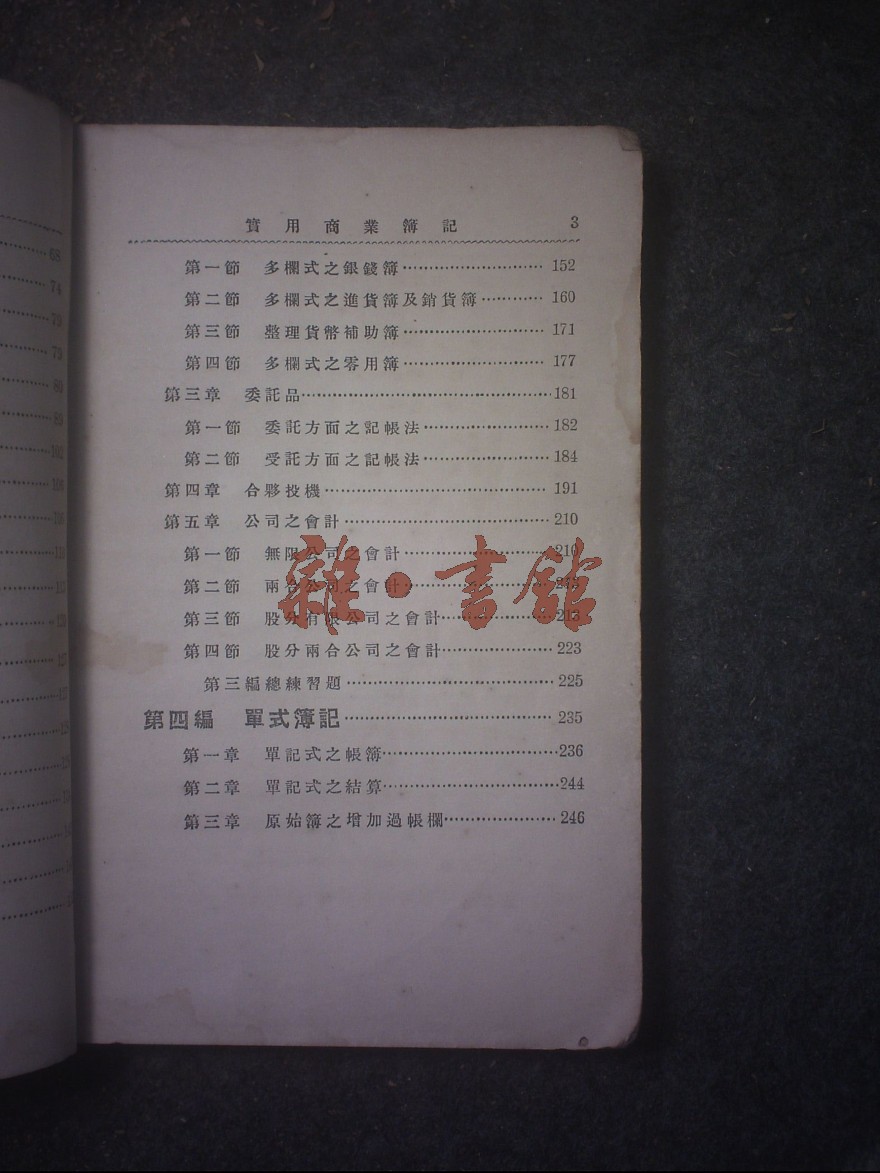 實用商業簿記 3
第一節 多欄式之銀錢簿 152
第二節 多欄式之進貨簿及銷貨簿 160
第三節 整理貨幣補助簿 171
第四節 多欄式之零用簿 177
第三章 委託品 181
第一節 委託方面之記帳法 182
第二節 受託方面之記帳法 184
第四章 合夥投機 191
第五章 公司之會計 210
第一節 無限公司之會計 210
第二節 兩合公司之會計
第三節 股分有限公司之會計 213
第四節 股分兩合公司之會計 223
第三編總練習題 225
第四編 單式簿記 235
第一章 單記式之帳簿 236
第二章 單記式之結算 244
第三章 原始簿之增加過帳欄 246
雜·書館
68
74
75
79